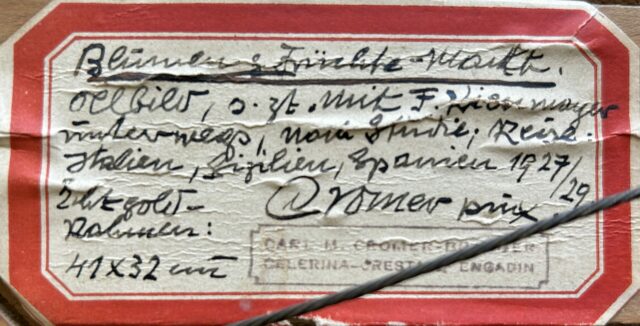 Blumen & Früchte-Markt.
Oelbild, s. zt. mit F. Kiesmayer
unterwegs, vom Studie, Reise-
Italien, Sizilien, Spanien 1927/29
Echtgold-
Rahmen: Cromer pinx.
41x32 cm
CARL M. CROMER-
CELERINA-CRESTA, ENGADIN